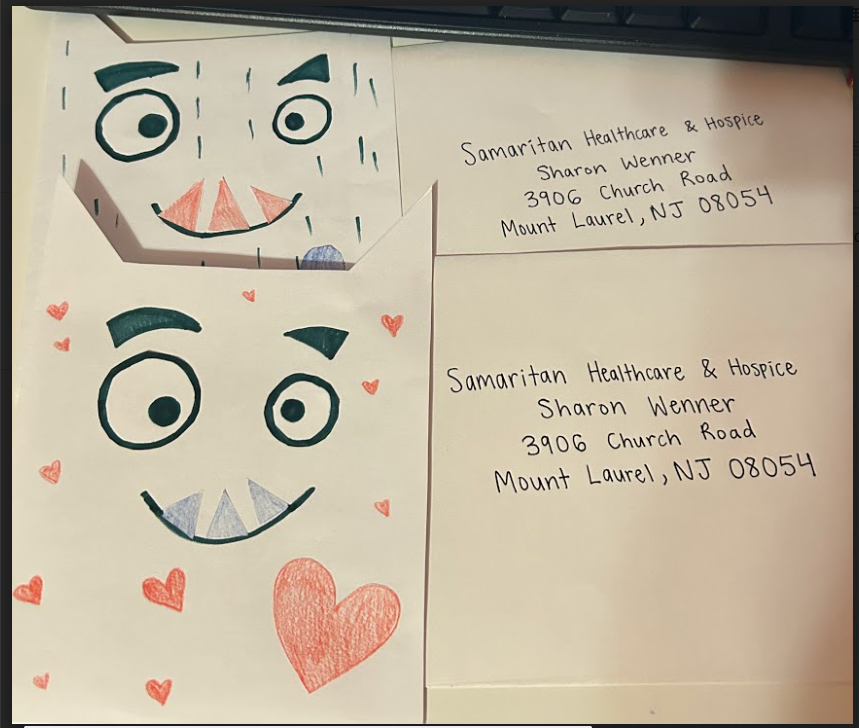 Samaritan Healthcare & Hospice
Sharon Wenner
3906 Church Road
Mount Laurel, NJ 08054
Samaritan Healthcare & Hospice
Sharon Wenner
3906 Church Road
Mount Laurel, NJ 08054